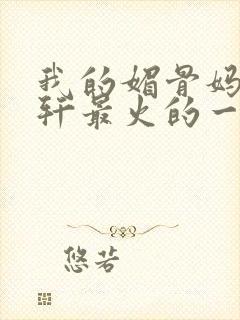 我的媚骨妈
轩最火的一
悠若